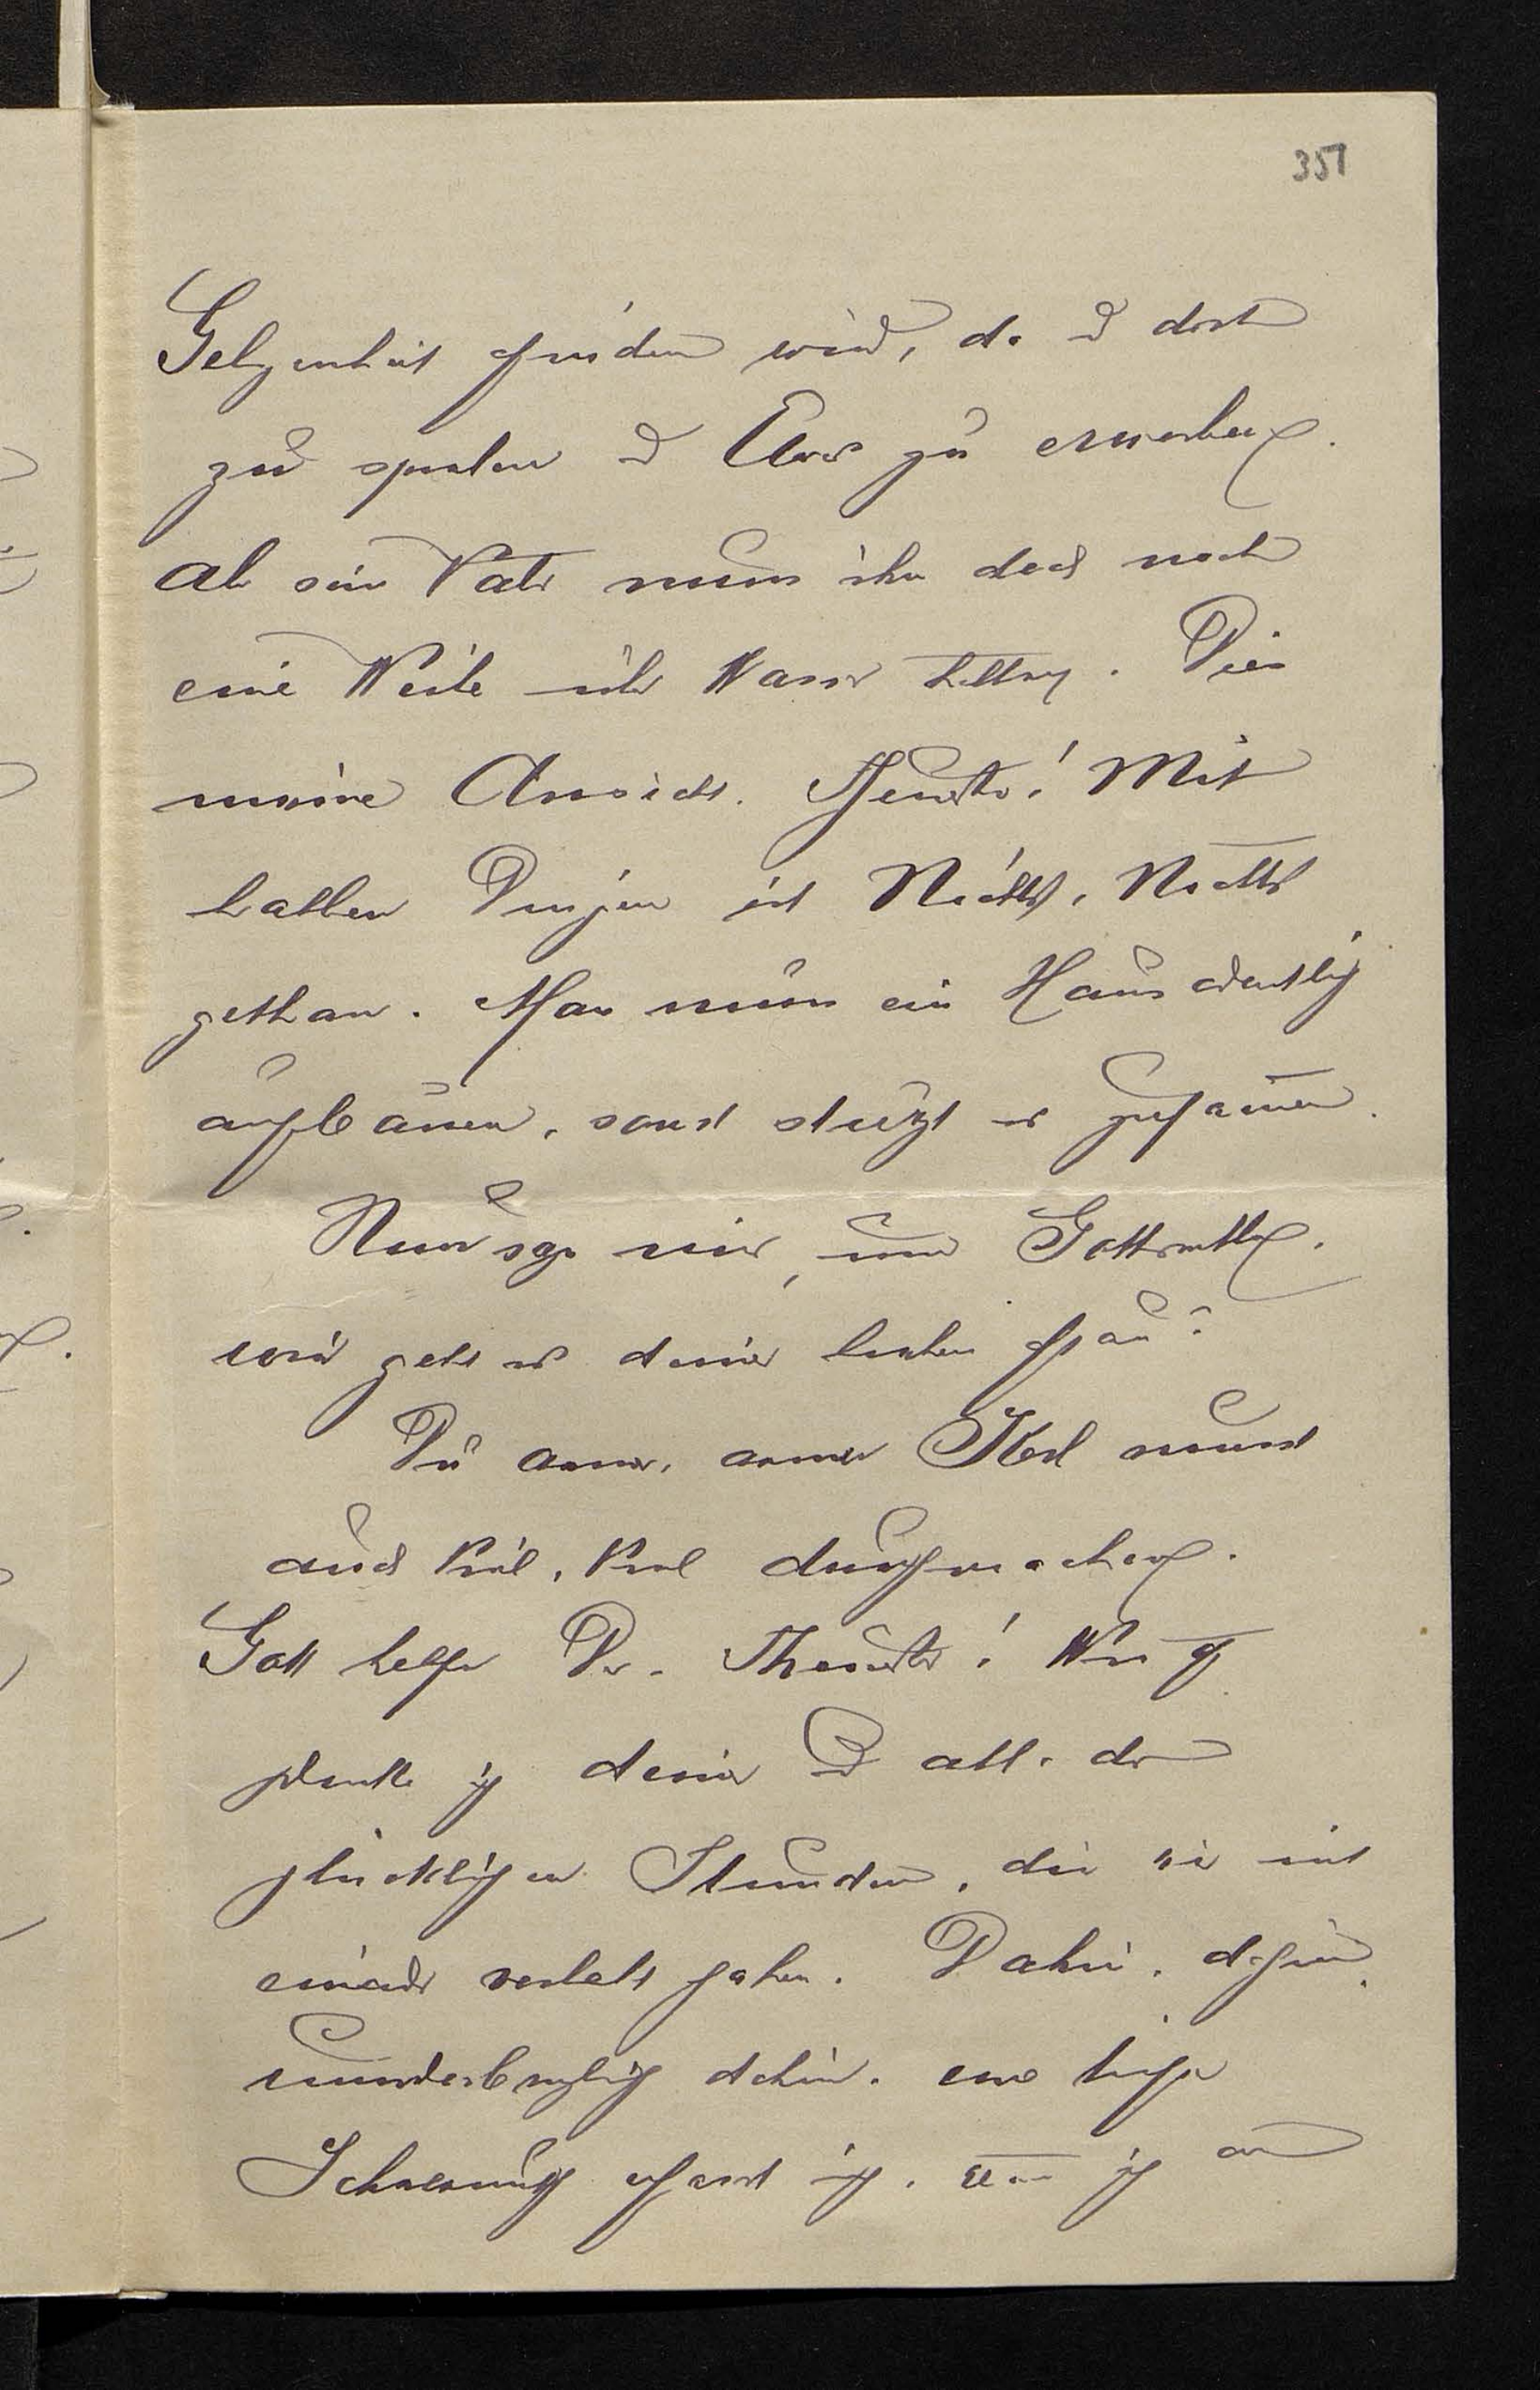 351
Gelegenheit finden wird, da u dort
zu sparen u Etwas zu erwerben.
Aber sein Vater muss ihn doch noch
eine Weile über Wasser halten. Dies
meine Ansicht. Theurster! Mit
halben Dingen ist Nichts, Nichts
gethan. Man muss ein Haus ordentlich
aufbauen, sonst stürzt es zusammen.
Nun sage mir, um Gotteswillen,
wie geht es deiner lieben Frau?
Du armer, armer Kerl musst
auch Viel, Viel durchmachen.
Gott helfe Dir, Theurster! Wie oft
denke ich deiner u all der
glücklichen Stunden, die wir mit
einander verlebt haben. Dahin, dahin,
unwiederbringlich dahin. Eine tiefe
Schwermuth erfasst ich, wenn ich an